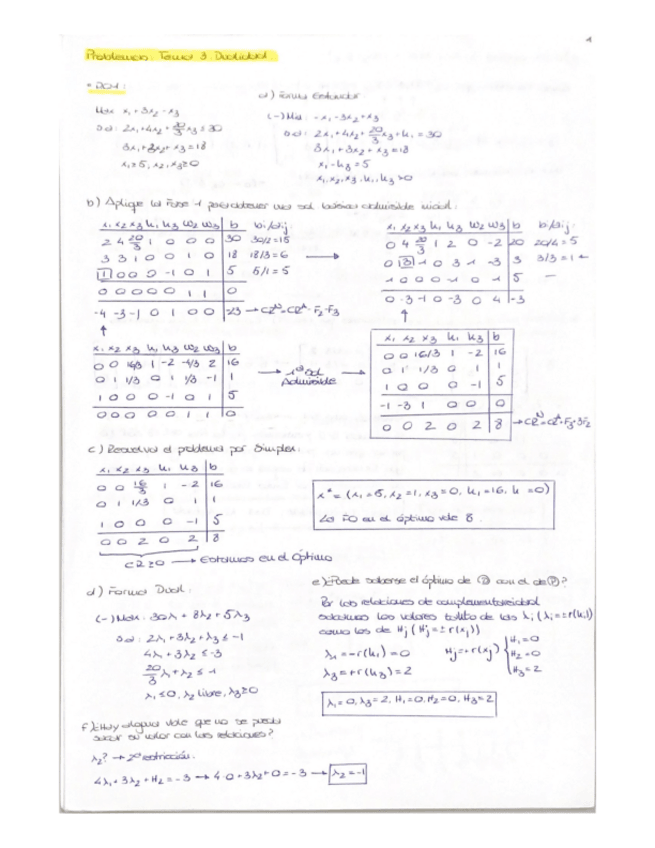 Problemas Tema 3. Dualidad.
* D01:
a) Forma Estándar
Max x₁+3x₂-x₃
s.a: 2x₁+4x₂+20/3x₃≤30
3x₁+3x₂+x₃=18
x₁≥5, x₂,x₃≥0
(-) Min: -x₁-3x₂+x₃
s.a: 2x₁+4x₂+20/3x₃+h₁=30
3x₁+3x₂+x₃=18
x₁-h₃=5
x₁,x₂,x₃,h₁,h₃≥0
b) Aplique la Fase 1 para obtener una sol. básica admisible inicial:
x₁ x₂ x₃ h₁ h₃ w₂ w₃ b bi/aij:
2 4 20/3 1 0 0 0 30 30/2=15
3 3 1 0 0 1 0 18 18/3=6
1 0 0 0 -1 0 1 5 5/1=5
0 0 0 0 0 1 1 0
-4 -3 -1 0 1 0 0 -23 → CRᴺ=CRᴬ-F₂-F₃
x₁ x₂ x₃ h₁ h₃ w₂ w₃ b bi/aij:
0 4 20/3 1 2 0 -2 20 20/4=5
0 3 1 0 3 1 -3 3 3/3=1 ←
1 0 0 0 -1 0 1 5 —
0 -3 -1 0 -3 0 4 -3
x₁ x₂ x₃ h₁ h₃ w₂ w₃ b
0 0 16/3 1 -2 -4/3 2 16
0 1 1/3 0 1 1/3 -1 1
1 0 0 0 -1 0 1 5
0 0 0 0 0 1 1 0
→ 1ª Sol Admisible →
x₁ x₂ x₃ h₁ h₃ b
0 0 16/3 1 -2 16
0 1 1/3 0 1 1
1 0 0 0 -1 5
-1 -3 1 0 0 0
0 0 2 0 2 8 → CRᴺ=CRᴬ+F₃+3F₂
c) Resuelva el problema por Simplex:
x₁ x₂ x₃ h₁ h₃ b
0 0 16/3 1 -2 16
0 1 1/3 0 1 1
1 0 0 0 -1 5
0 0 2 0 2 8
CR≥0 → Estamos en el Óptimo
x* = (x₁=5, x₂=1, x₃=0, h₁=16, h =0)
La FO en el óptimo vale 8.
d) Forma Dual:
(-) Max: 30λ + 8λ₂+5λ₃
s.a: 2λ₁+3λ₂+λ₃≤-1
4λ₁+3λ₂≤-3
20/3λ₁+λ₂≤1
λ₁≤0, λ₂ libre, λ₃≥0
e) ¿Puede saberse el óptimo de D con el de P?
Por las relaciones de complementariedad
sabemos los valores tanto de las λi (λi=±r(hi))
como los de Hj (Hj=±r(xj))
λ₁=-r(h₁)=0
λ₃=+r(h₃)=2
Hj=+r(xj) { H₁=0 H₂=0 H₃=2
λ₁=0, λ₃=2, H₁=0, H₂=0, H₃=2
f) ¿Hay alguna vble que no se pueda
sacar su valor con las relaciones?
λ₂? → 2ª restricción.
4λ₁+3λ₂+H₂=-3 → 4·0+3λ₂+0=-3 → λ₂=-1